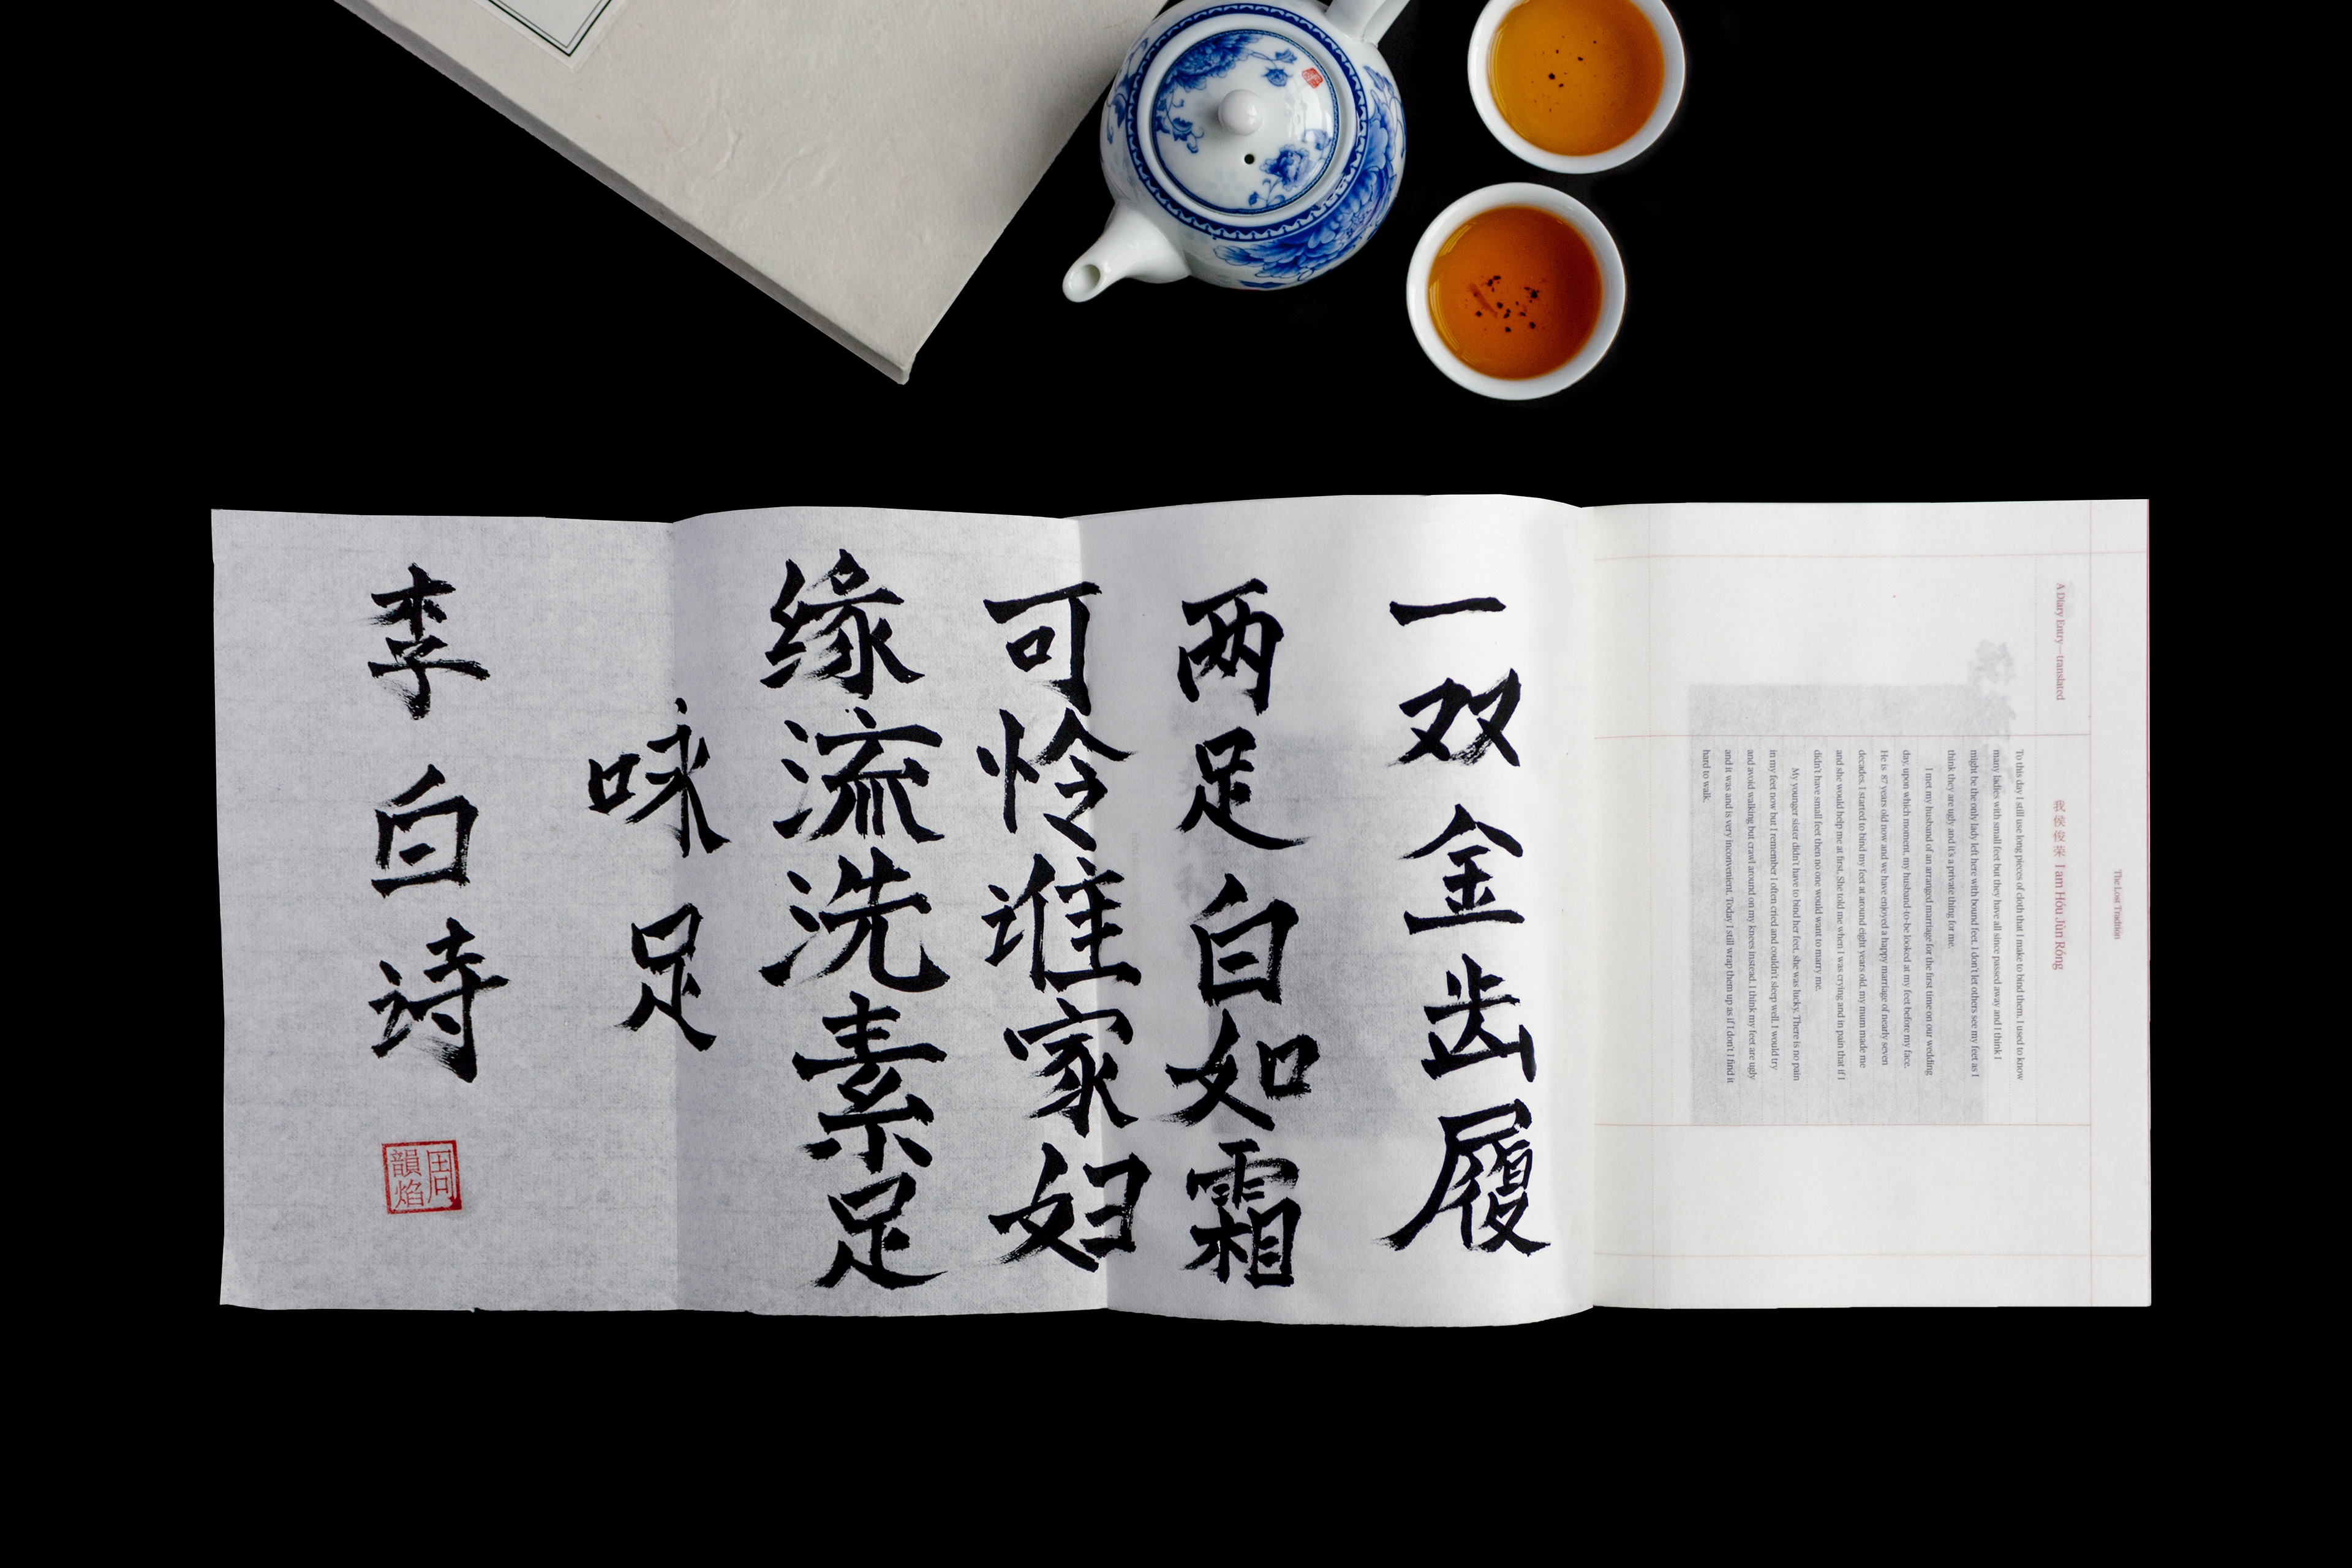 The Lost Tradition
A Diary Entry—translated
我侯俊荣 I am Hóu Jùn Róng
To this day I still use long pieces of cloth that I make to bind them. I used to know
many ladies with small feet but they have all since passed away and I think I
might be the only lady left here with bound feet. I don't let others see my feet as I
think they are ugly and it's a private thing for me.
I met my husband of an arranged marriage for the first time on our wedding
day, upon which moment, my husband-to-be looked at my feet before my face.
He is 87 years old now and we have enjoyed a happy marriage of nearly seven
decades. I started to bind my feet at around eight years old, my mum made me
and she would help me at first. She told me when I was crying and in pain that if I
didn't have small feet then no one would want to marry me.
My younger sister didn't have to bind her feet, she was lucky. There is no pain
in my feet now but I remember I often cried and couldn't sleep well. I would try
and avoid walking but crawl around on my knees instead. I think my feet are ugly
and it was and is very inconvenient. Today I still wrap them up as if I don't I find it
hard to walk.
一双金齿履
两足白如霜
可怜谁家妇
缘流洗素足
咏足
李白诗
周韻焰